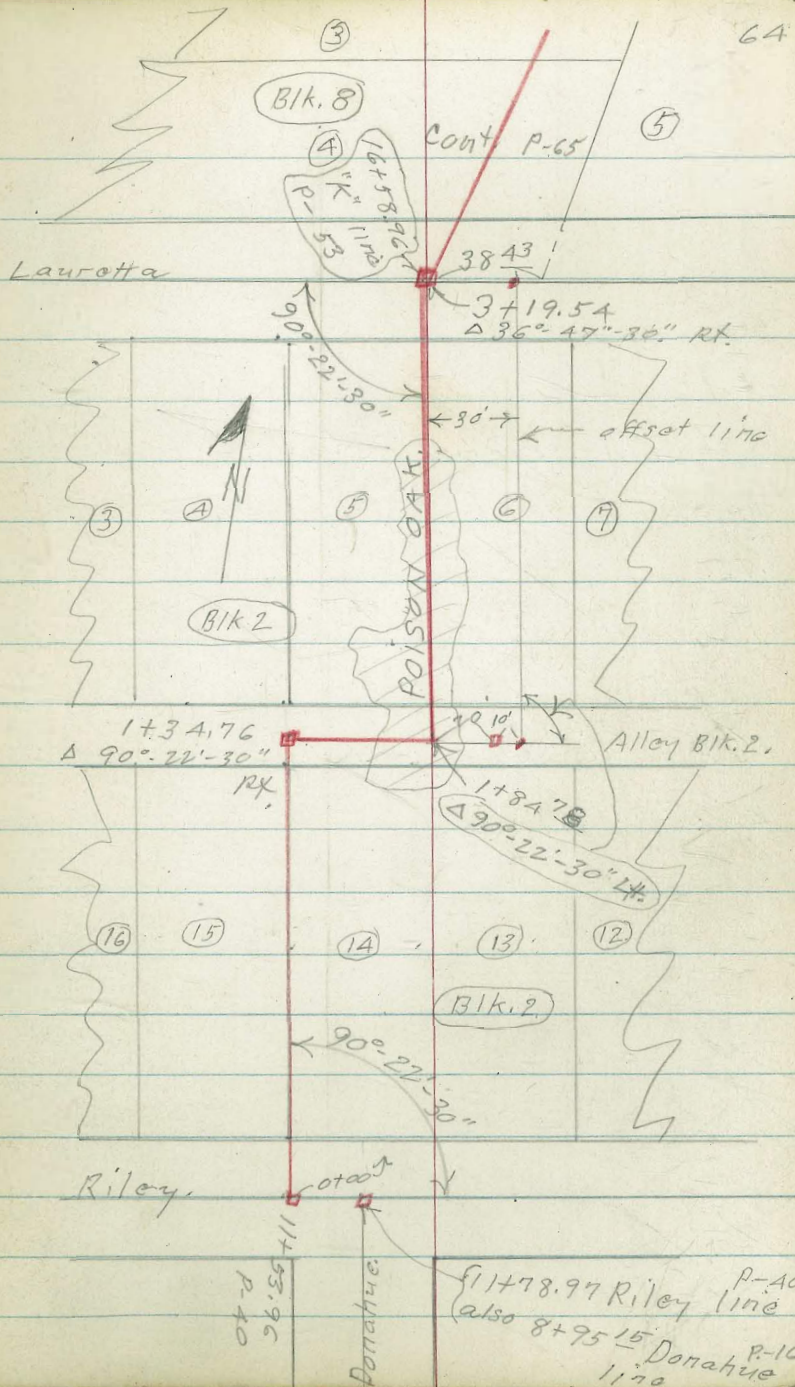 64
③
Blk. 8
④
⑤
Cont. P-65
16+58.96
"K" line
P-53
Lauretta
38 43
3+19.54
Δ 36°-47"-30" Rt.
90°-22'-30"
30'
offset line
N
③
④
⑤
⑥
⑦
POISON OAK.
Blk 2
1+34.76
Δ 90°-22'-30"
Rt.
10'
Alley Blk. 2.
1+84 78
Δ 90°-22'-30" Lt.
⑯
⑮
⑭
⑬
⑫
Blk. 2
90°-22'-30"
Riley.
0+00
11+53.96
P-40
Donahue
11+78.97 Riley line P-40
also 8+95 15 Donahue line P-10